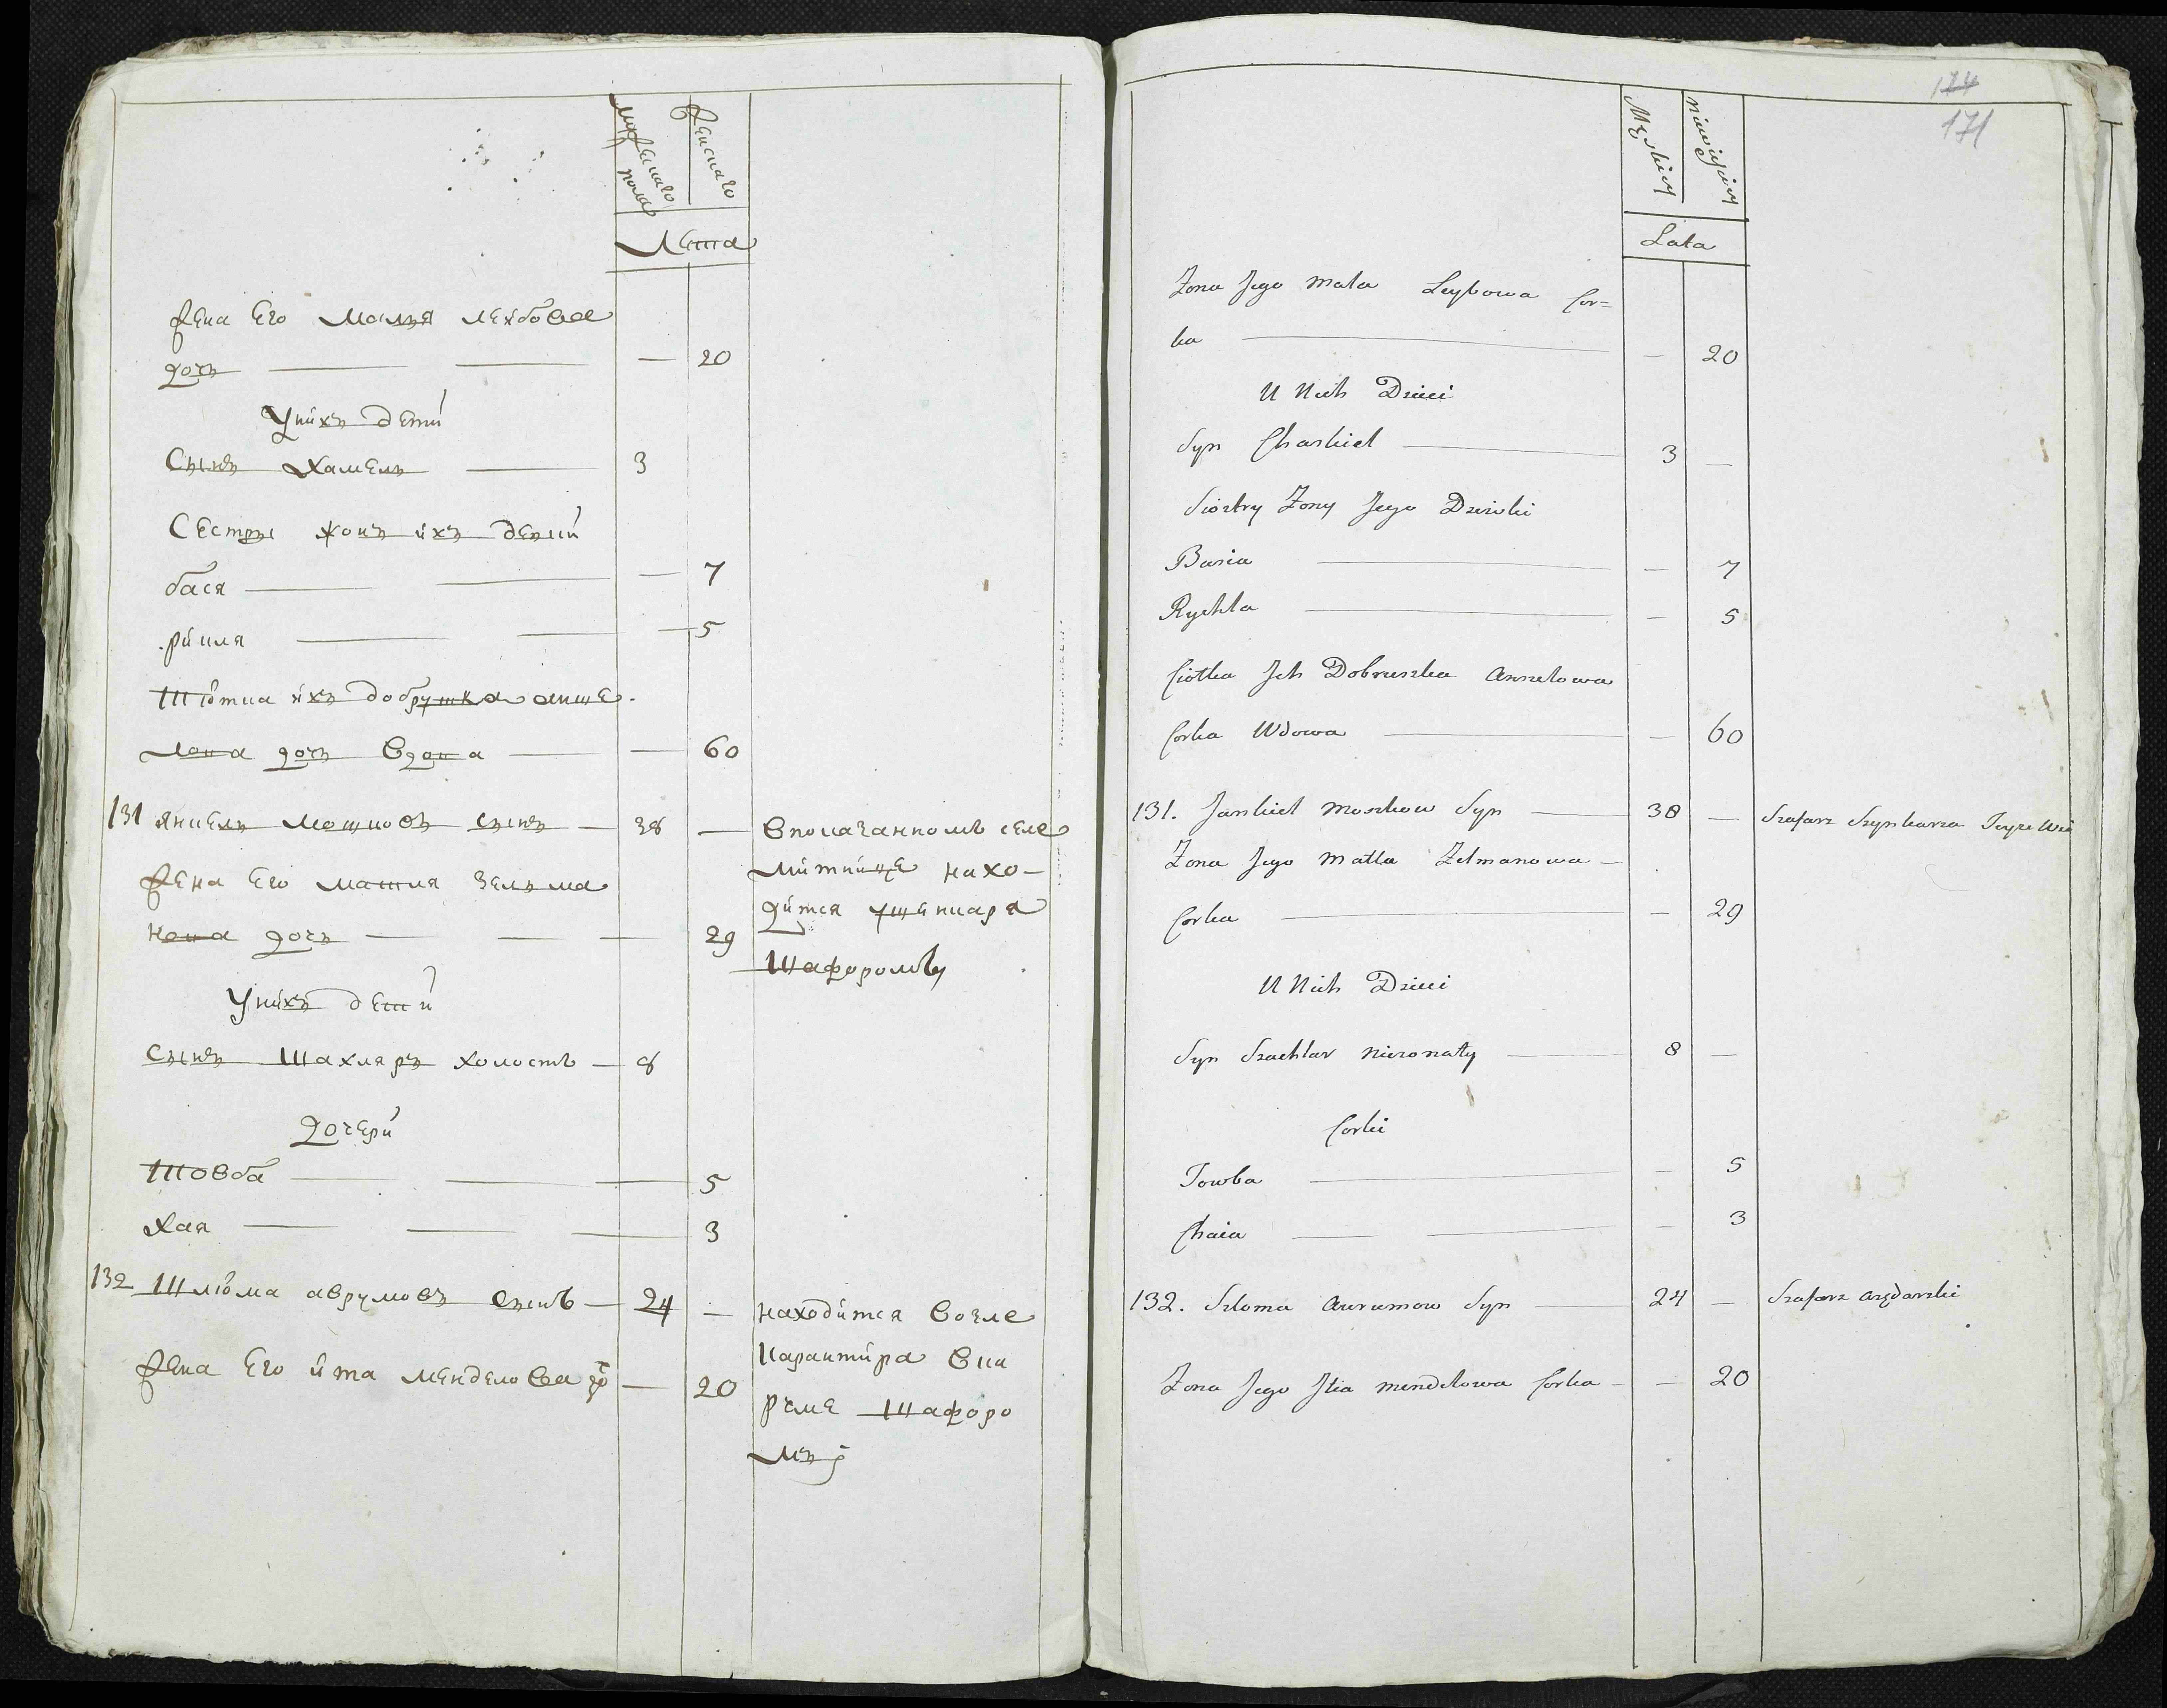 мужескаго пола
женскаго
Лета
жена Его Малня лейбова
дочь — — — 20
У нихъ дети
Сынъ Хашель — 3
Сестры жонъ ихъ
бася — — — 7
рикля — — — 5
Тиотка ихъ добрушка анше-
лова дочь вдова — — 60
131 янкель Мошковъ сынъ — 38 — В показанномъ селе
жена Его матля зельма
митнице нахо-
дится у шинкаря
нова дочь — — — 29
Шафоромъ
У нихъ дети
сынъ Шахляръ холостъ — 8
дочери
Товба — — — 5
Хая — — — 3
132 Шлиома аврумовъ сынъ — 24 — находится возле
карантира в ка
жена Его ита менделова до — 20
рчме Шафоро
мъ
174
171
Męskiey
niewieściey
Lata
Zona Jego Mala Leybowa Cor=
ka — — 20
U Nich Dzieci
Syn Chaskiel — 3 —
Siostry Zony Jego Dziewki
Basia — — 7
Rychla — — 5
Ciotka Jch Dobruszka Anszelowa
Corka Wdowa — — 60
131. Jankiel Moszkow Syn — 38 — Szafarz Szynkarza Teyze Wsi
Zona Jego Matla Zelmanowa —
Corka — — 29
U Nich Dzieci
Syn Szachlar Niezonaty — 8 —
Corki
Towba — — 5
Chaia — — — 3
132. Szloma Awrumow Syn 24 — Szafarz Arędarski
Zona Jego Itia Mendelowa Corka — — 20